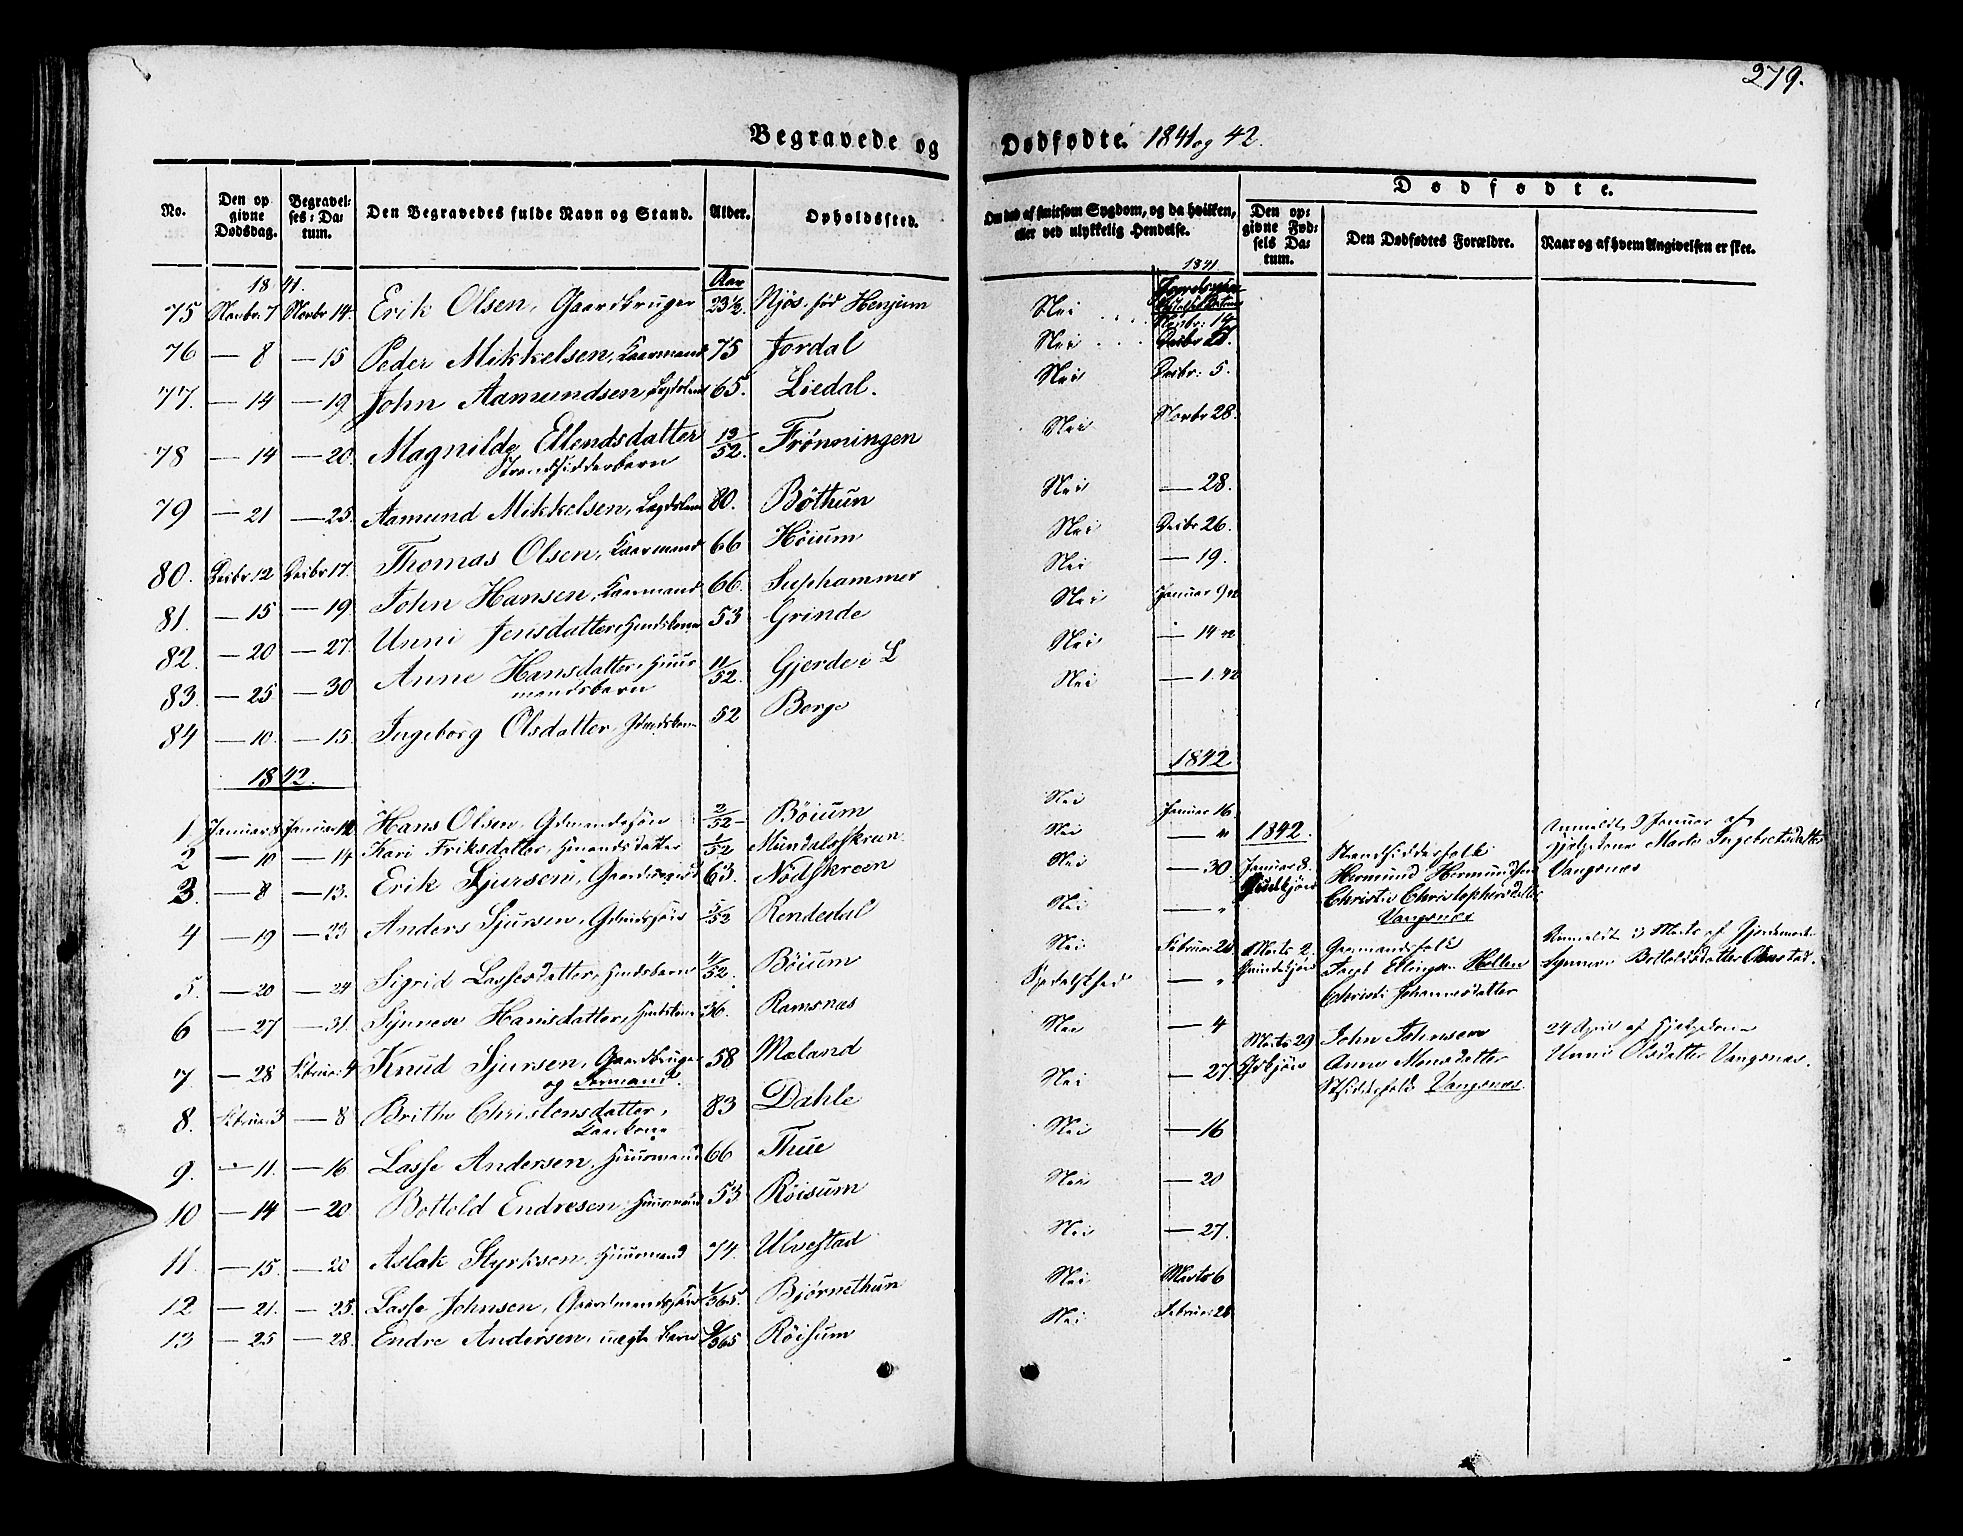 279.
Begravede og Dødfødte. 1841 og 42.
No.
Den opgivne Dødsdag.
Begravelses-Datum.
Den Begravedes fulde Navn og Stand.
Alder.
Opholdssted.
Om død af smitsom Sygdom, og da hvilken,
eller ved ulykkelig Hendelse.
Dødfødte.
Den opgivne Fødsels Datum.
Den Dødfødtes Forældre.
Naar og af hvem Angivelsen er skee.
1841. Aar 1841
75 Novbr. 7 Novbr 14. Erik Olsen, Gaardbruger 23½ Njøs, fød Henjum Nei Novbr: 14
76 — 8 — 15 Peder Mikkelsen, Kaarmand 75 Jordal Nei Decbr
77. — 14 — 19 John Aamundsen, Lægdslem 65. Liedal. Nei Decbr: 5.
78 — 14 — 20. Magnilde Ellendsdatter 12/52. Frønningen Nei Novbr 28.
Strandsidderbarn
79 — 21 — 25. Aamund Mikkelsen, Lægdslem 80. Bøthun Nei — 28.
80. Decbr. 12 Decbr 17. Thomas Olsen, Kaarmand 66 Høium Nei Decbr 26.
81. — 15 — 19 John Hansen, Kaarmand 66. Suphammer Nei — 19.
82. — 20 — 27. Unni Jensdatter, 53 Grinde Nei Januar 9 42
83. — 25 — 30 Anne Hansdatter, Huus- 11/52. Gjerde i L Nei — 14 42
mandsbarn
84 — 10. — 15. Ingeborg Olsdatter 52 Berge Nei — 1. 42
1842. 1842
1 Januar 8 Januar 12 Hans Olsen, Gdmandssøn 2/52 Bøium Nei Januar 16.
2 — 10 — 14 Kari Eriksdatter, Hmandsdatter 1/52 Mundalsskreen. Nei — "
3. — 8 — 13. Erik Sjursen, 63. Nødskreen Nei — 30
4 — 19 — 23 Anders Sjursen, Gdmdssøn /52 Rendedal Nei — "
5. — 20 — 24 Sigrid Lassesdatter, Hmdsbarn /52. Bøium Nei Februar 20
6 — 27 — 31. Synneve Hansdatter, Hmdskone 36. Ramsnæs — "
7 — 28 Februar 4 Knud Sjursen, Gaardbruger 58 Mæland Nei — 4
og Formand.
8. Februar 3 — 8 Brithe Christensdatter, 83 Dahle Nei — 27.
Kaarkone
9. — 11. — 16 Lasse Andersen, Huusmand 66 Thue Nei — 16
10 — 14 — 20 Bottold Endresen, Huusmand 53 Røisum Nei — 20
11. — 15. — 20 Aslak Styrksen, Huusmand 74. Ulvestad Nei — 27.
12 — 21. — 25. Lasse Johnsen, Gaardmandssøn 1/365. Bjørnethun Nei Marts 6
13 — 25 — 28. Endre Andersen, uægte Barn 9/365 Røisum Nei Februar 28
1842.
Januar 8. Strandsidderfolk: Anmeldt 9 Januar af
Hermund Hermundsen Gjordemor Marta Ingebrictsdatter
Christi Christophersdatter Vangsnæs
Vangsnæs
Marts 2. Gaarmandsfolk Anmeldt Marts af Gjordemoder
Jacob Ellingsen Hollen Synneve Bottolfsdatter
Christi Johannesdatter
Marts 29 John Johnsen 24 April af Hjelpekone
Anne Monsdatter Unni Olsdatter Vangsnæs.
Stsidderfolk Vangsnæs.